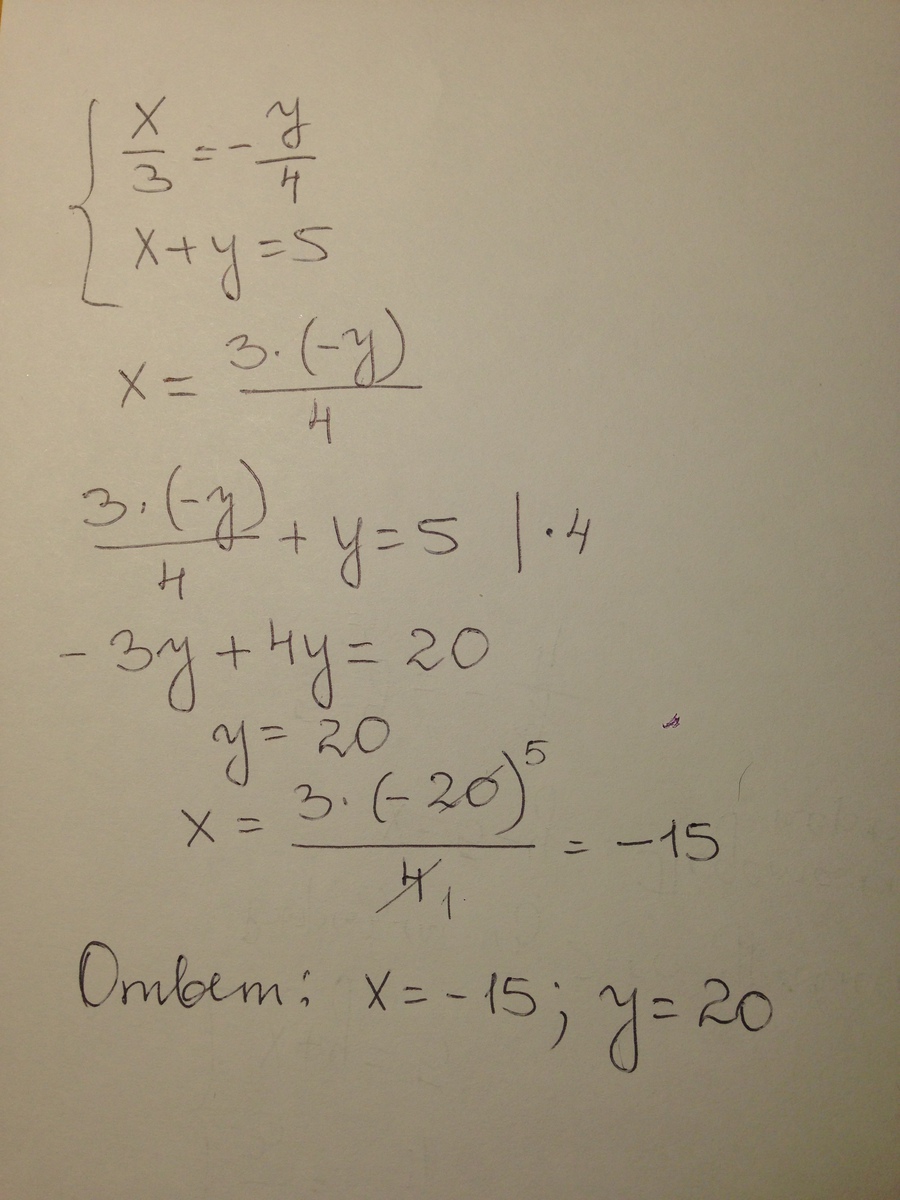 x/3 = - y/4
x + y = 5
x = 3·(-y)/4
3·(-y)/4 + y = 5 | ·4
- 3y + 4y = 20
y = 20
x = 3·(-20)⁵/4₁ = -15
Ответ: x = -15; y = 20